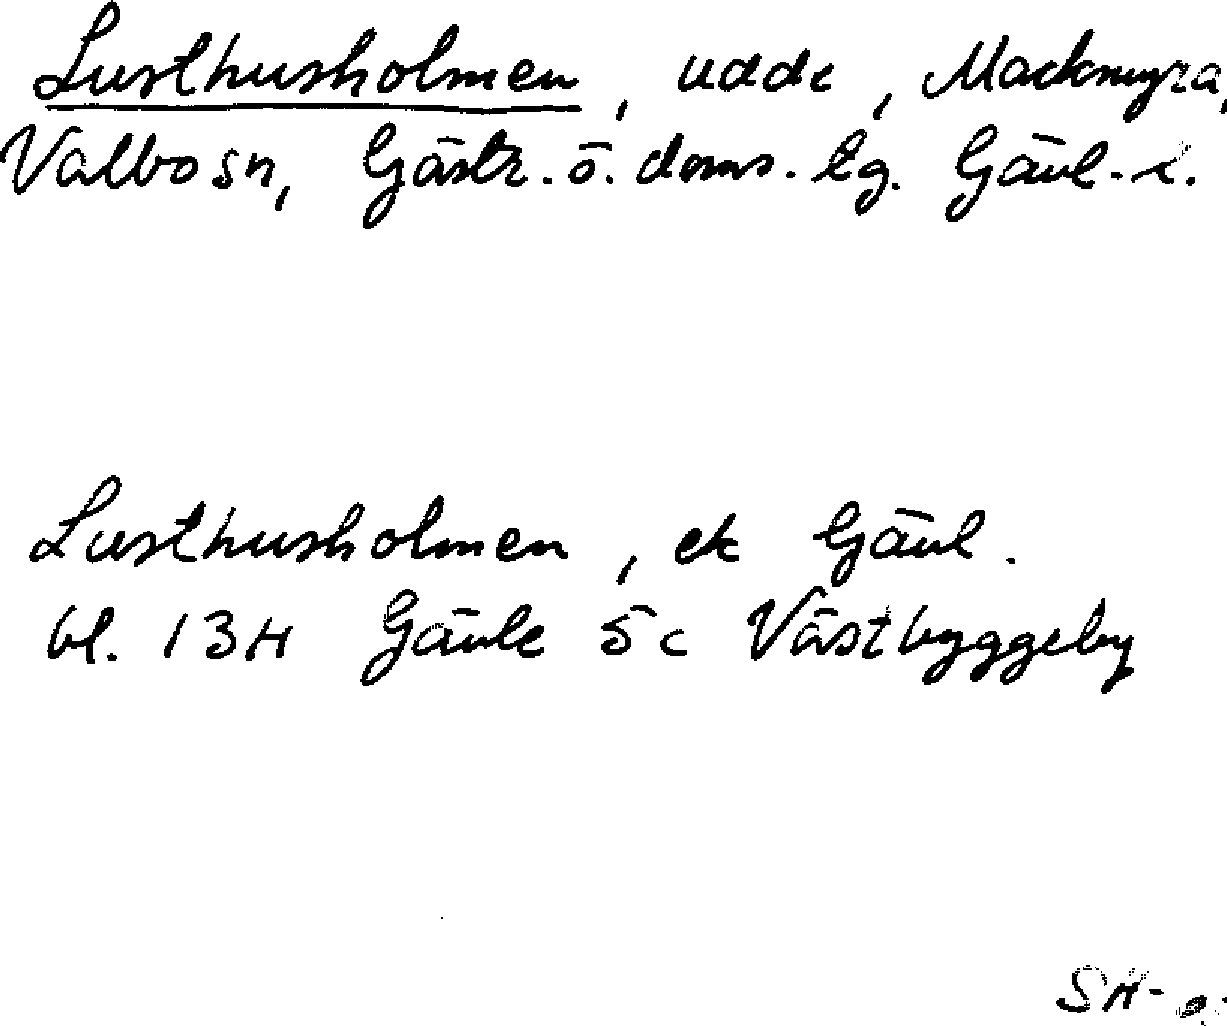 Lusthusholmen, udde, Mackmyra,
Valbo sn, Gästr. ö. doms. tg. Gävl. l.
Lusthusholmen, ek Gävl.
bl. 13H Gävle 5c Västbyggeby
SH